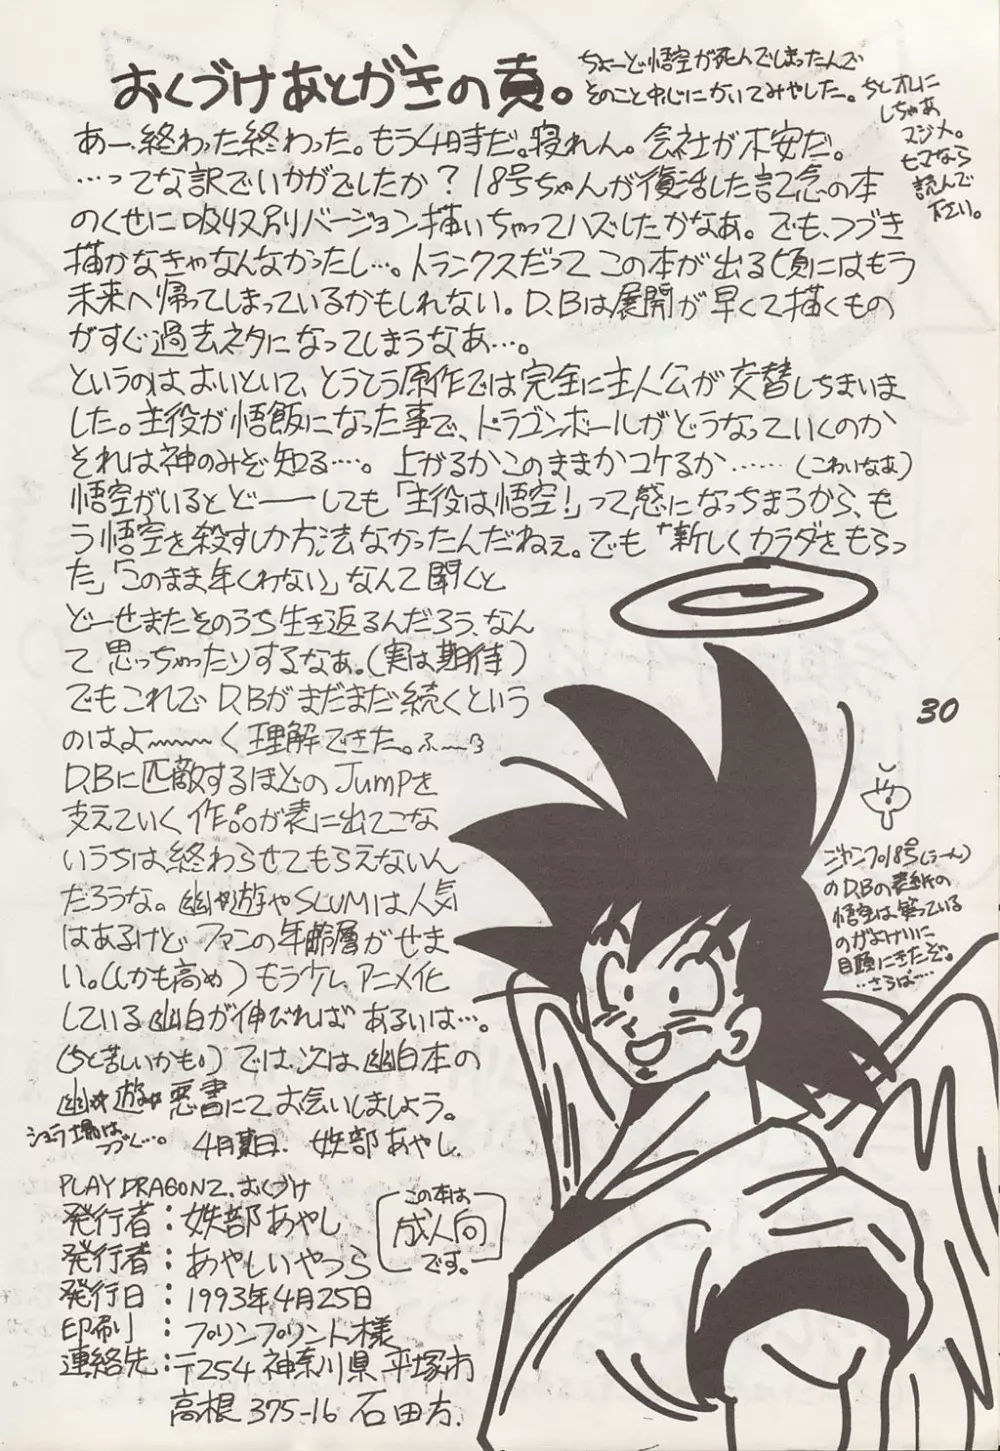 おくづけあとがきの頁。
ちょーど悟空が死んでしまったんで
そのこと中心にかいてみやした。ちとオレに
しちゃあ
マジメ。
ヒマなら
読んで
下さい。
あー、終わった終わった。もう4時だ。寝れん。会社が不安だ。
…ってな訳でいかがでしたか？18号ちゃんが復活した記念の本
のくせに吸収別バージョン描いちゃってハズしたかなあ。でも、つづき
描かなきゃなんなかったし…。トランクスだって この本が出る頃にはもう
未来へ帰ってしまっているかもしれない。D.Bは展開が早くて描くもの
がすぐ過去ネタになってしまうなあ…。
というのは、おいといて、とうとう原作では完全に主人公が交替しちまいま
した。主役が悟飯になった事で、ドラゴンボールがどうなっていくのか
それは神のみぞ知る…。上がるかこのままかコケるか……（こわいなあ）
悟空がいるとどーーしても「主役は悟空！」って感になっちまうから、も
う悟空を殺すしか方法なかったんだねぇ。でも「新しくカラダをもらっ
た」「このまま年くわない」なんて聞くと
どーせまたそのうち生き返るんだろう、なん
て思っちゃったりするなあ。（実は期待）
でもこれでD.Bがまだまだ続くという
のはよ〜〜〜く理解できた。ふーっ
D.Bに匹敵するほどのJUMPを
支えていく作品が表に出てこな
いうちは、終わらせてもらえないん
だろうな。幽や遊やSLUMは人気
はあるけど ファンの年齢層がせま
い。（しかも高め）もうすぐアニメ化
している幽白が伸びれば あるいは…。
（ちと苦しいかも。）では、次は、幽白本の
幽☆遊☆悪書にて お会いしましょう。
ショうち場は
つづく…。
4月某日. 妖部あやし.
30
ジャンプ18号（うーん）
のD.Bの表紙の
悟空は、笑っている
のがよけいに
目頭にきたぞ。
…さらば……
PLAY DRAGON 2. おくづけ
発行者：妖部あやし
発行者：あやしいやつら
発行日：1993年4月25日
印刷：プリンプリント様
連絡先：〒254 神奈川県 平塚市
高根375-16 石田方.
この本は
成人向
です。